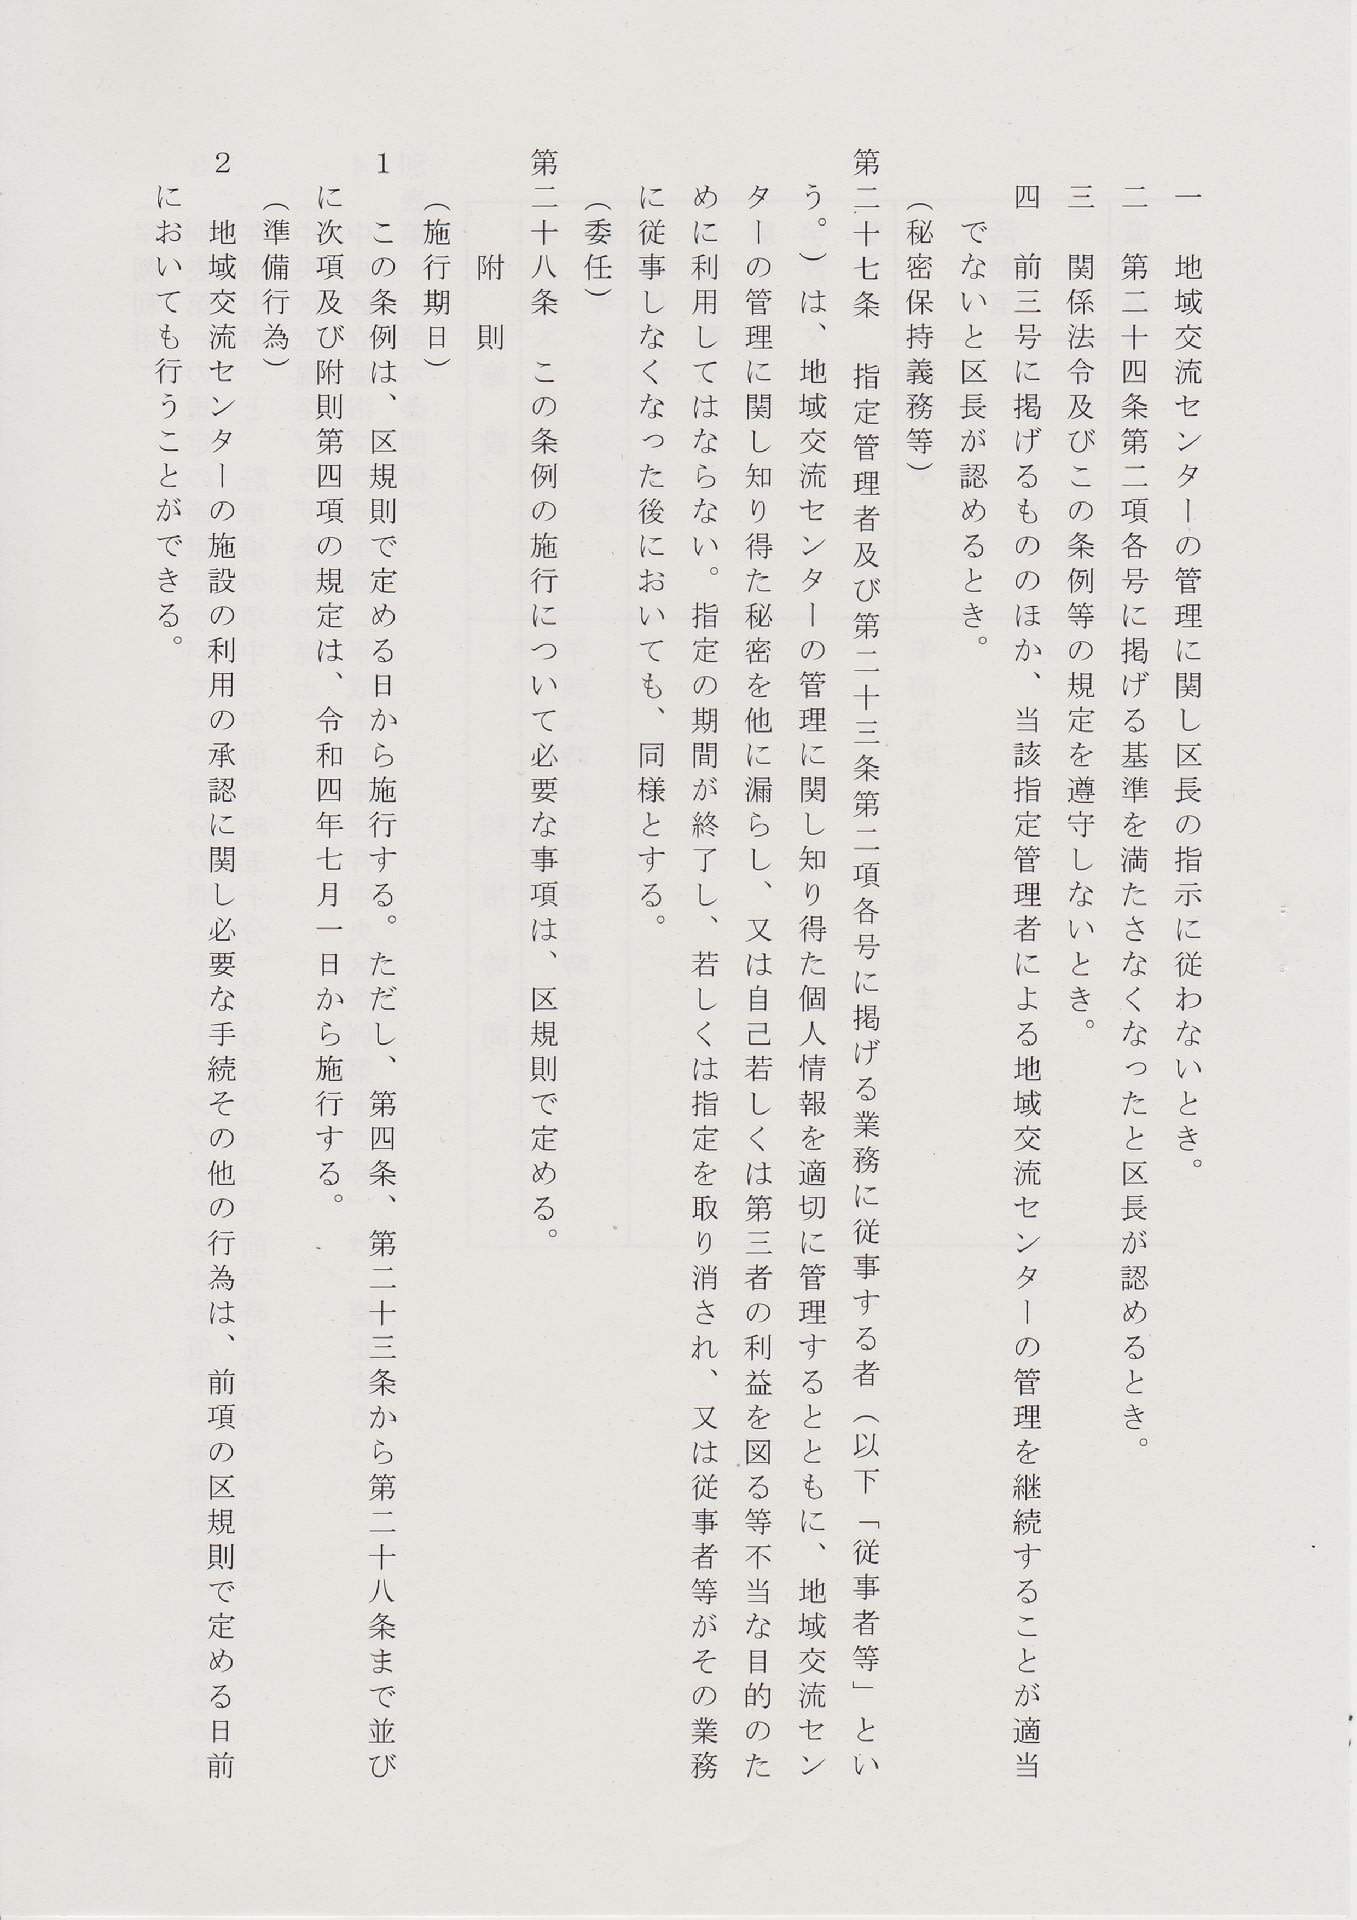 一　地域交流センターの管理に関し区長の指示に従わないとき。
二　第二十四条第二項各号に掲げる基準を満たさなくなったと区長が認めるとき。
三　関係法令及びこの条例等の規定を遵守しないとき。
四　前三号に掲げるもののほか、当該指定管理者による地域交流センターの管理を継続することが適当
でないと区長が認めるとき。
（秘密保持義務等）
第二十七条　指定管理者及び第二十三条第二項各号に掲げる業務に従事する者（以下「従事者等」とい
う。）は、地域交流センターの管理に関し知り得た個人情報を適切に管理するとともに、地域交流セン
ターの管理に関し知り得た秘密を他に漏らし、又は自己若しくは第三者の利益を図る等不当な目的のた
めに利用してはならない。指定の期間が終了し、若しくは指定を取り消され、又は従事者等がその業務
に従事しなくなった後においても、同様とする。
（委任）
第二十八条　この条例の施行について必要な事項は、区規則で定める。
附　則
（施行期日）
１　この条例は、区規則で定める日から施行する。ただし、第四条、第二十三条から第二十八条まで並び
に次項及び附則第四項の規定は、令和四年七月一日から施行する。
（準備行為）
２　地域交流センターの施設の利用の承認に関し必要な手続その他の行為は、前項の区規則で定める日前
においても行うことができる。